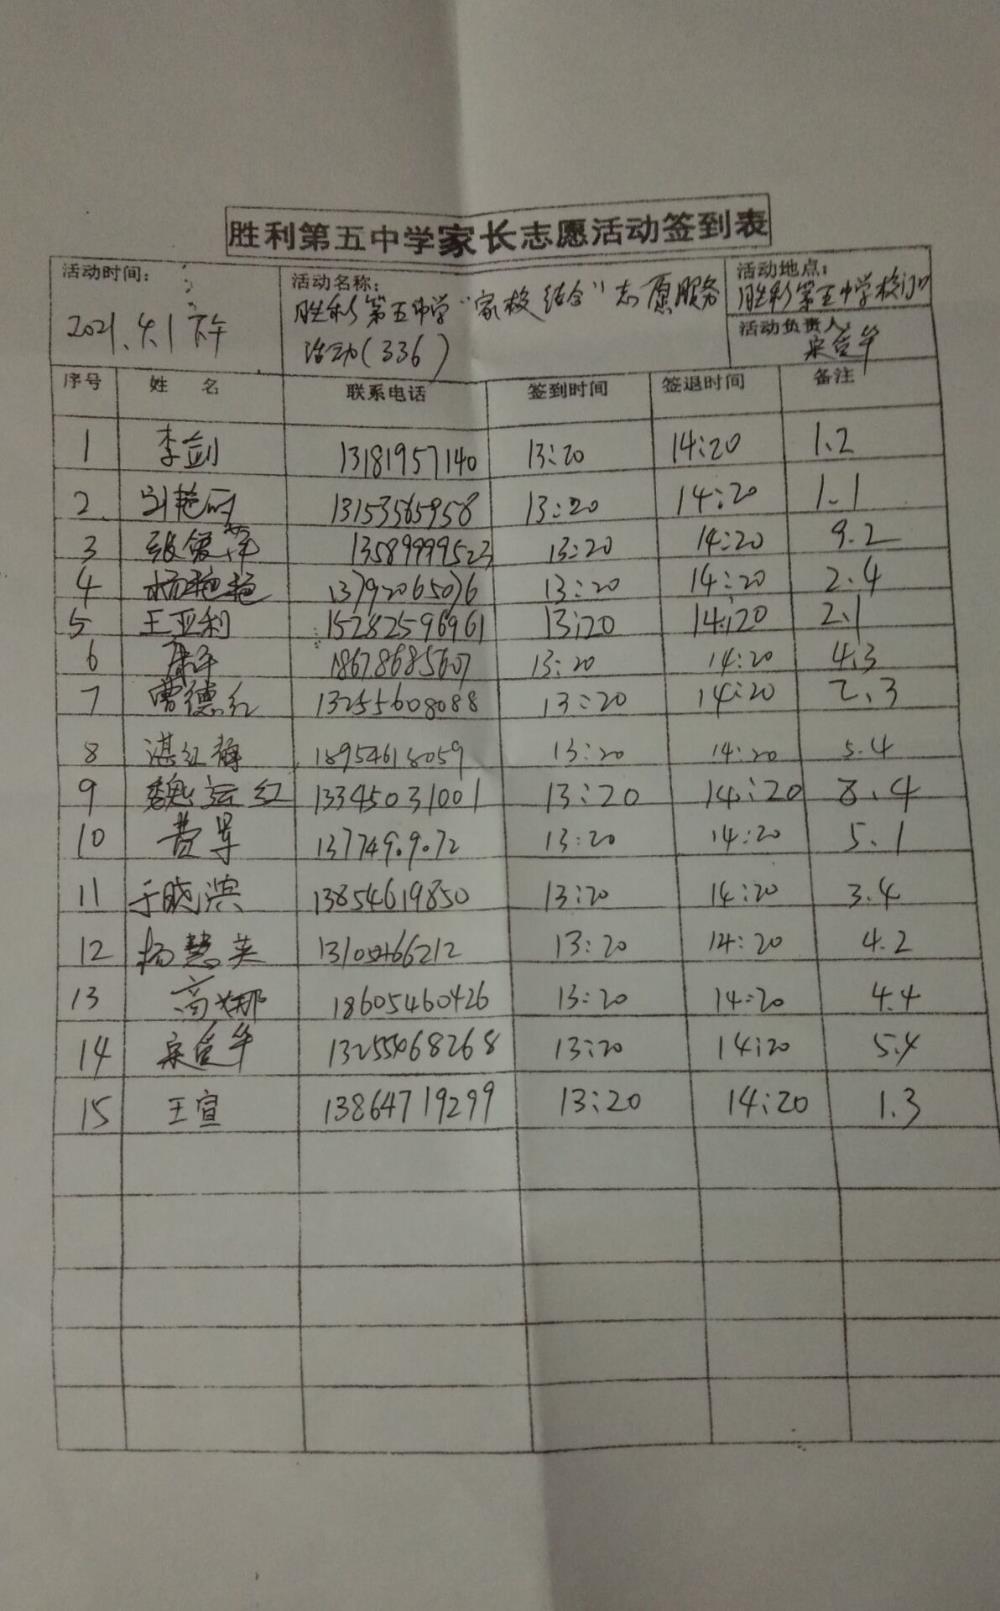 胜利第五中学家长志愿活动签到表
活动时间： 2021.4.1下午
活动名称：
胜利第五中学“家校结合”志愿服务
活动(336)
活动地点：
胜利第五中学校门口
活动负责人：
序号 姓 名 联系电话 签到时间 签退时间 备注
1 李剑 13181957140 13:20 14:20 1.2
2 刘艳丽 13153565958 13:20 14:20 1.1
3 13589999523 13:20 14:20 9.2
4 杨艳艳 13792065076 13:20 14:20 2.4
5 王亚利 15282596961 13:20 14:20 2.1
6 18678685607 13:20 14:20 4.3
7 曹德红 13255608088 13:20 14:20 2.3
8 湛红梅 18954618059 13:20 14:20 5.4
9 魏运红 13345031001 13:20 14:20 8.4
10 13:20 14:20 5.1
11 于晓滨 13854619850 13:20 14:20 3.4
12 杨慧英 13:20 14:20 4.2
13 高娜 18605460426 13:20 14:20 4.4
14 13:20 14:20 5.4
15 王宣 13864719299 13:20 14:20 1.3